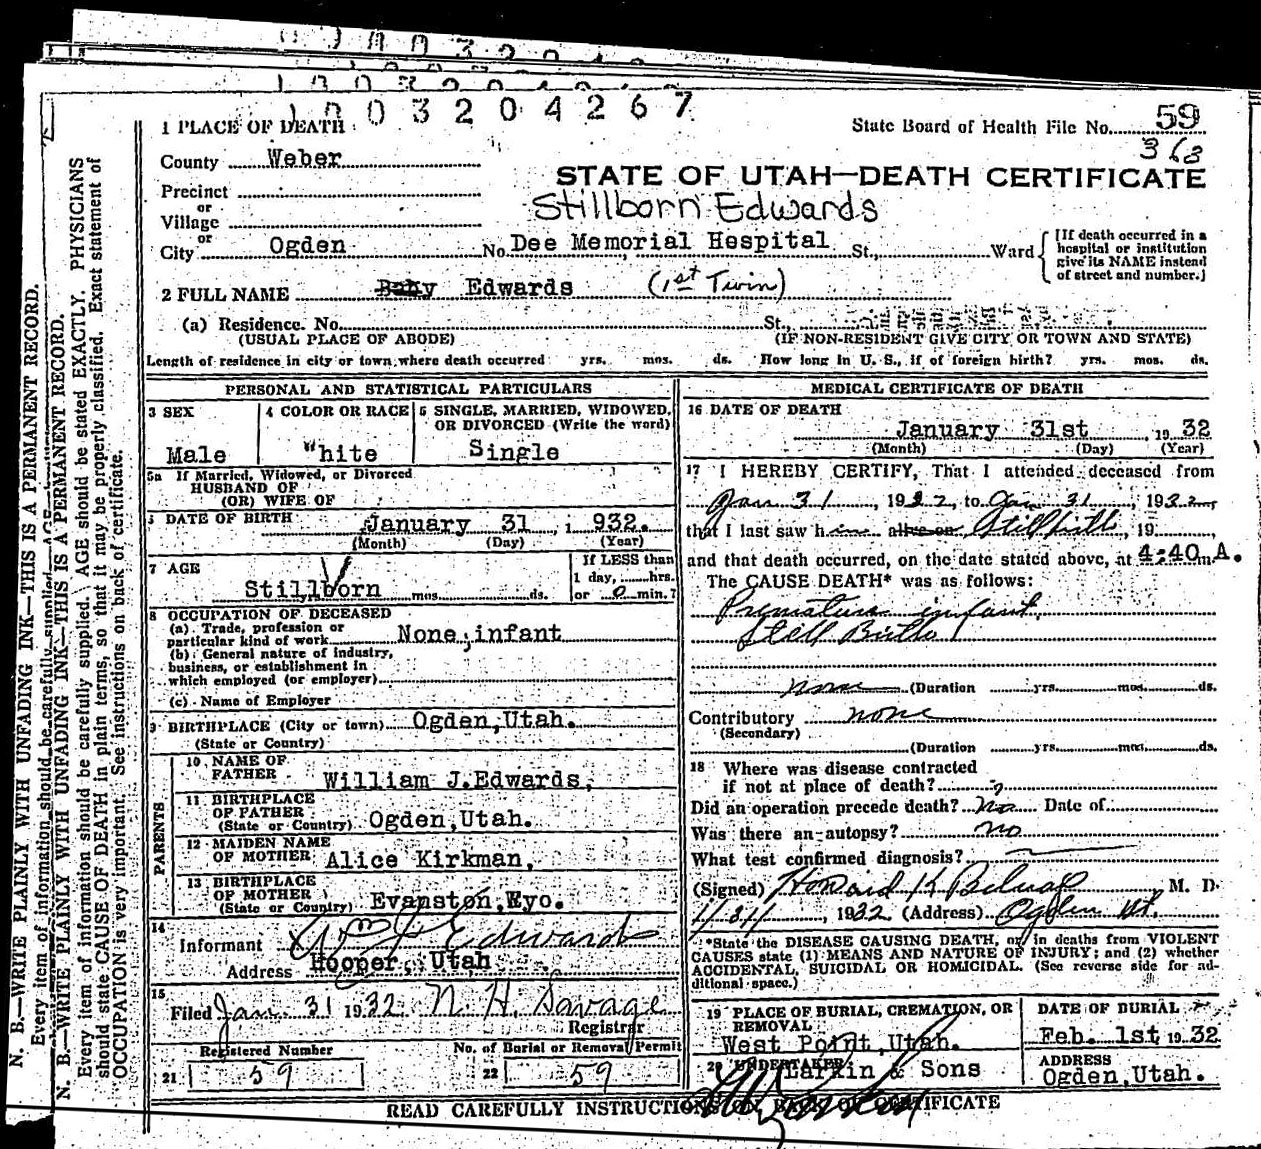 1003204267
1 PLACE OF DEATH
State Board of Health File No. 59
363
County Weber
STATE OF UTAH—DEATH CERTIFICATE
Precinct
or
Stillborn Edwards
Village
or
City Ogden No. Dee Memorial Hospital St., Ward
[If death occurred in a
hospital or institution
give its NAME instead
of street and number.]
2 FULL NAME Baby Edwards (1st Twin)
(a) Residence. No. St.,
(USUAL PLACE OF ABODE) (IF NON-RESIDENT GIVE CITY OR TOWN AND STATE)
Length of residence in city or town where death occurred yrs. mos. ds. How long in U. S., if of foreign birth? yrs. mos. ds.
PERSONAL AND STATISTICAL PARTICULARS
3 SEX 4 COLOR OR RACE 5 SINGLE, MARRIED, WIDOWED,
OR DIVORCED (Write the word)
Male "hite Single
5a If Married, Widowed, or Divorced
HUSBAND OF
(OR) WIFE OF
DATE OF BIRTH January 31 1 932.
(Month) (Day) (Year)
7 AGE If LESS than
1 day, hrs.
Stillborn mos. ds. or 0 min.?
8 OCCUPATION OF DECEASED
(a) Trade, profession or
particular kind of work None, infant
(b) General nature of industry,
business, or establishment in
which employed (or employer)
(c) Name of Employer
9 BIRTHPLACE (City or town) Ogden, Utah.
(State or Country)
PARENTS
10 NAME OF
FATHER William J. Edwards,
11 BIRTHPLACE
OF FATHER
(State or Country) Ogden, Utah.
12 MAIDEN NAME
OF MOTHER Alice Kirkman,
13 BIRTHPLACE
OF MOTHER
(State or Country) Evanston, Wyo.
14
Informant Wm J Edwards
Address Hooper, Utah
15
Filed Jan. 31 1932 N. H. Savage
Registrar
Registered Number No. of Burial or Removal Permit
21 59 22 59
MEDICAL CERTIFICATE OF DEATH
16 DATE OF DEATH
January 31st, 1932
(Month) (Day) (Year)
17 I HEREBY CERTIFY, That I attended deceased from
Jan 31, 1932, to Jan 31, 1932,
that I last saw him alive on Stillbirth, 19
and that death occurred, on the date stated above, at 4:40 A.m.
The CAUSE DEATH* was as follows:
Premature infant.
Still Birth
none (Duration yrs. mos. ds.
Contributory none
(Secondary)
(Duration yrs. mos. ds.
18 Where was disease contracted
if not at place of death? ?
Did an operation precede death? No Date of
Was there an autopsy? no
What test confirmed diagnosis?
(Signed) Howard K Belnap M. D.
1/31/, 1932 (Address) Ogden Ut.
*State the DISEASE CAUSING DEATH, or in deaths from VIOLENT
CAUSES state (1) MEANS AND NATURE OF INJURY; and (2) whether
ACCIDENTAL, SUICIDAL OR HOMICIDAL. (See reverse side for ad-
ditional space.)
19 PLACE OF BURIAL, CREMATION, OR
REMOVAL
West Point, Utah.
DATE OF BURIAL
Feb. 1st, 1932
20 UNDERTAKER
Larkin & Sons
ADDRESS
Ogden, Utah.
READ CAREFULLY INSTRUCTIONS ON BACK OF CERTIFICATE
N. B.—WRITE PLAINLY WITH UNFADING INK—THIS IS A PERMANENT RECORD.
Every item of information should be carefully supplied.
N. B.—WRITE PLAINLY WITH UNFADING INK—THIS IS A PERMANENT RECORD.
Every item of information should be carefully supplied. AGE should be stated EXACTLY. PHYSICIANS
should state CAUSE OF DEATH in plain terms, so that it may be properly classified. Exact statement of
OCCUPATION is very important. See instructions on back of certificate.